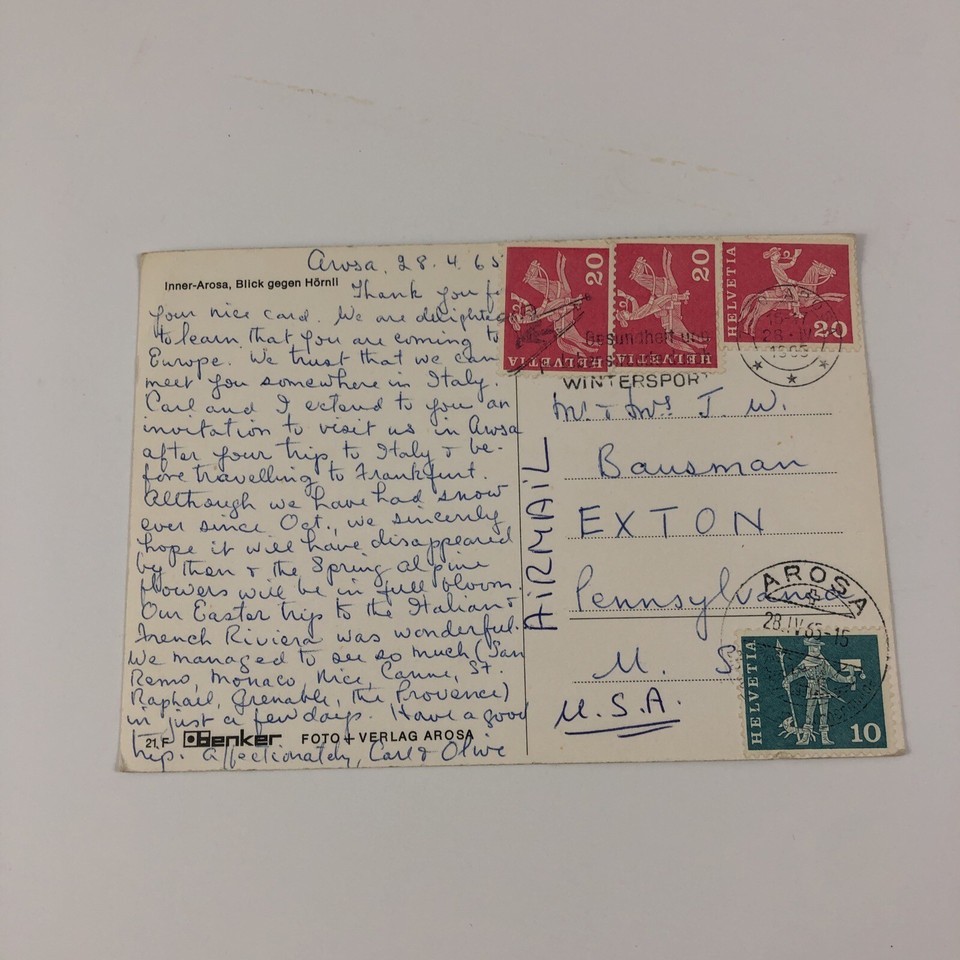 Arosa, 28.4.65
Inner-Arosa, Blick gegen Hörnli
Thank you fo
your nice card. We are delighted
to learn that you are coming to
Europe. We trust that we can
meet you somewhere in Italy.
Carl and I extend to you an
invitation to visit us in Arosa
after your trip to Italy & be-
fore travelling to Frankfurt.
Although we have had snow
ever since Oct., we sincerely
hope it will have disappeared
by then & the Spring alpine
flowers will be in full bloom.
Our Easter trip to the Italian &
French Riviera was wonderful.
We managed to see so much (San
Remo, Monaco, Nice, Canne, St.
Raphael, Grenable, the Provence)
in just a few days. Have a good
trip. Affectionately, Carl & Olive
21, F Benker FOTO + VERLAG AROSA
AIRMAIL
HELVETIA 20
HELVETIA 20
HELVETIA 20
Gesundheit und
WINTERSPORT
28.IV
1965
Mr. & Mrs J. W.
Bausman
EXTON
Pennsylvania
U. S
U.S.A.
AROSA
28.IV.65-16
HELVETIA 10